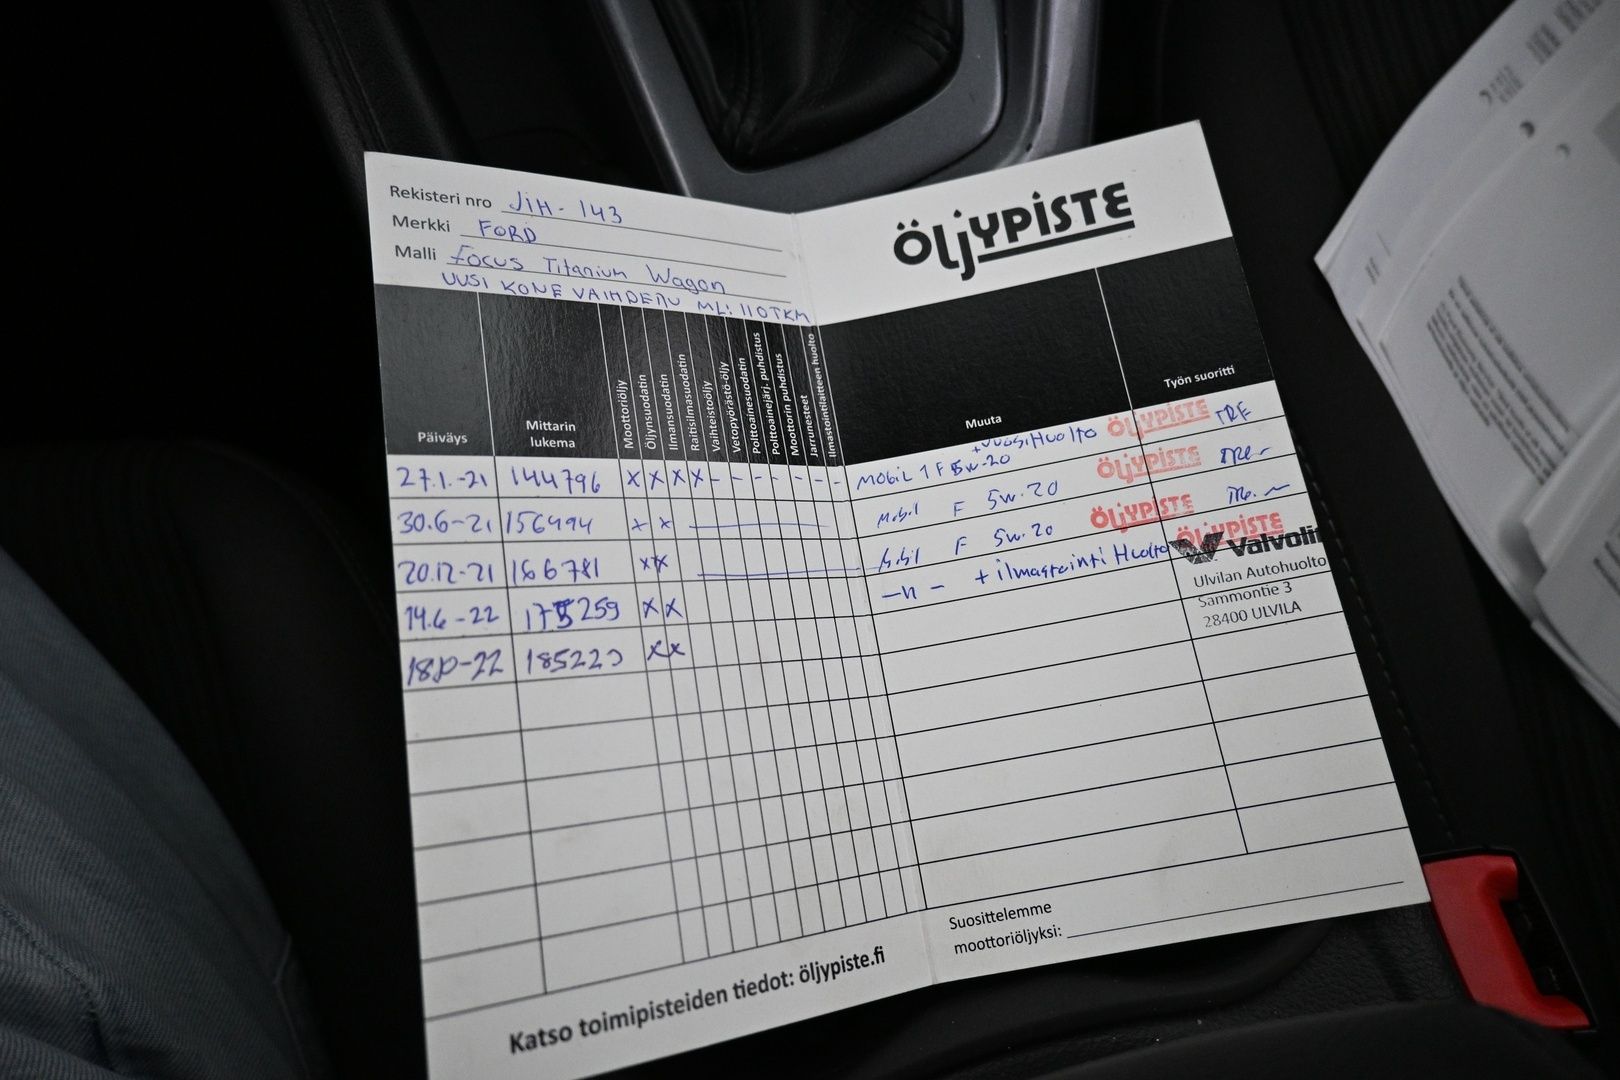 Rekisteri nro JiH-143
Merkki FORD
Malli Focus Titanium Wagon
UUSI KONE VAIHDETTU ML: 110TKM
ÖLJYPISTE
Päiväys
Mittarin lukema
Moottoriöljy
Öljynsuodatin
Ilmansuodatin
Raitisilmasuodatin
Vaihteistoöljy
Vetopyörästö-öljy
Polttoainesuodatin
Polttoainejärj. puhdistus
Moottorin puhdistus
Jarrunesteet
Ilmastointilaitteen huolto
Muuta
Työn suoritti
+VUOSiHuolto
27.1.-21 144796 x x x x - - - - - - - MOBiL 1 F 5W-20 ÖLJYPISTE TRE
30.6-21 156494 x x Mobil F 5w.20 ÖLJYPISTE TRE
20.12-21 166781 x x Mobil F 5w.20 ÖLJYPISTE TRE
14.6-22 175259 x x -n- + ilmastointi Huolto ÖLJYPISTE
-22 185223 x x
Valvoli
Ulvilan Autohuolto
Sammontie 3
28400 ULVILA
Suosittelemme
moottoriöljyksi:
Katso toimipisteiden tiedot: öljypiste.fi